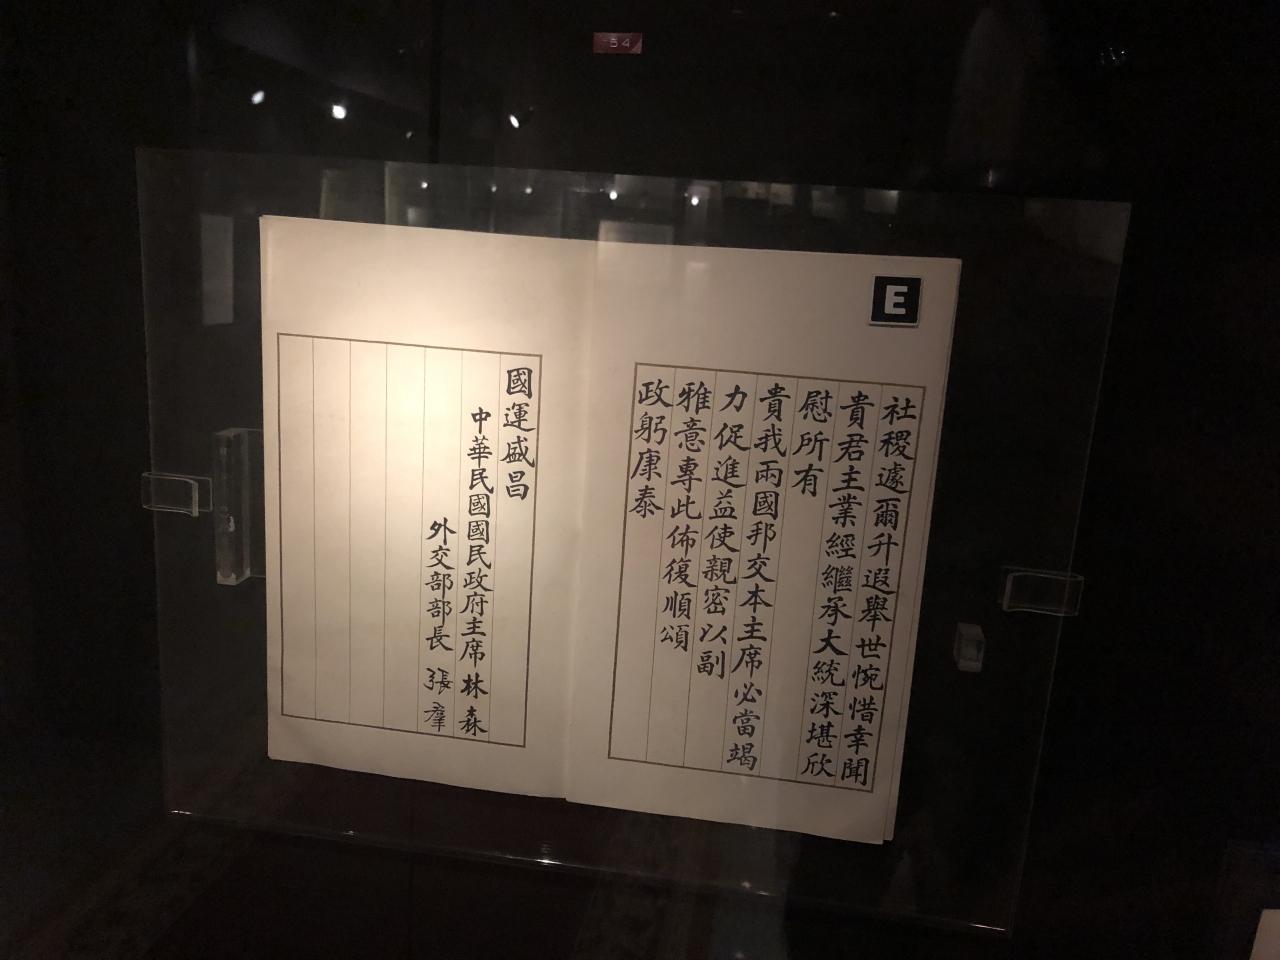 54
E
社稷遽爾升遐舉世惋惜幸聞
貴君主業經繼承大統深堪欣
慰所有
貴我兩國邦交本主席必當竭
力促進益使親密以副
雅意專此佈復順頌
政躬康泰
國運盛昌
中華民國國民政府主席林森
外交部部長張羣